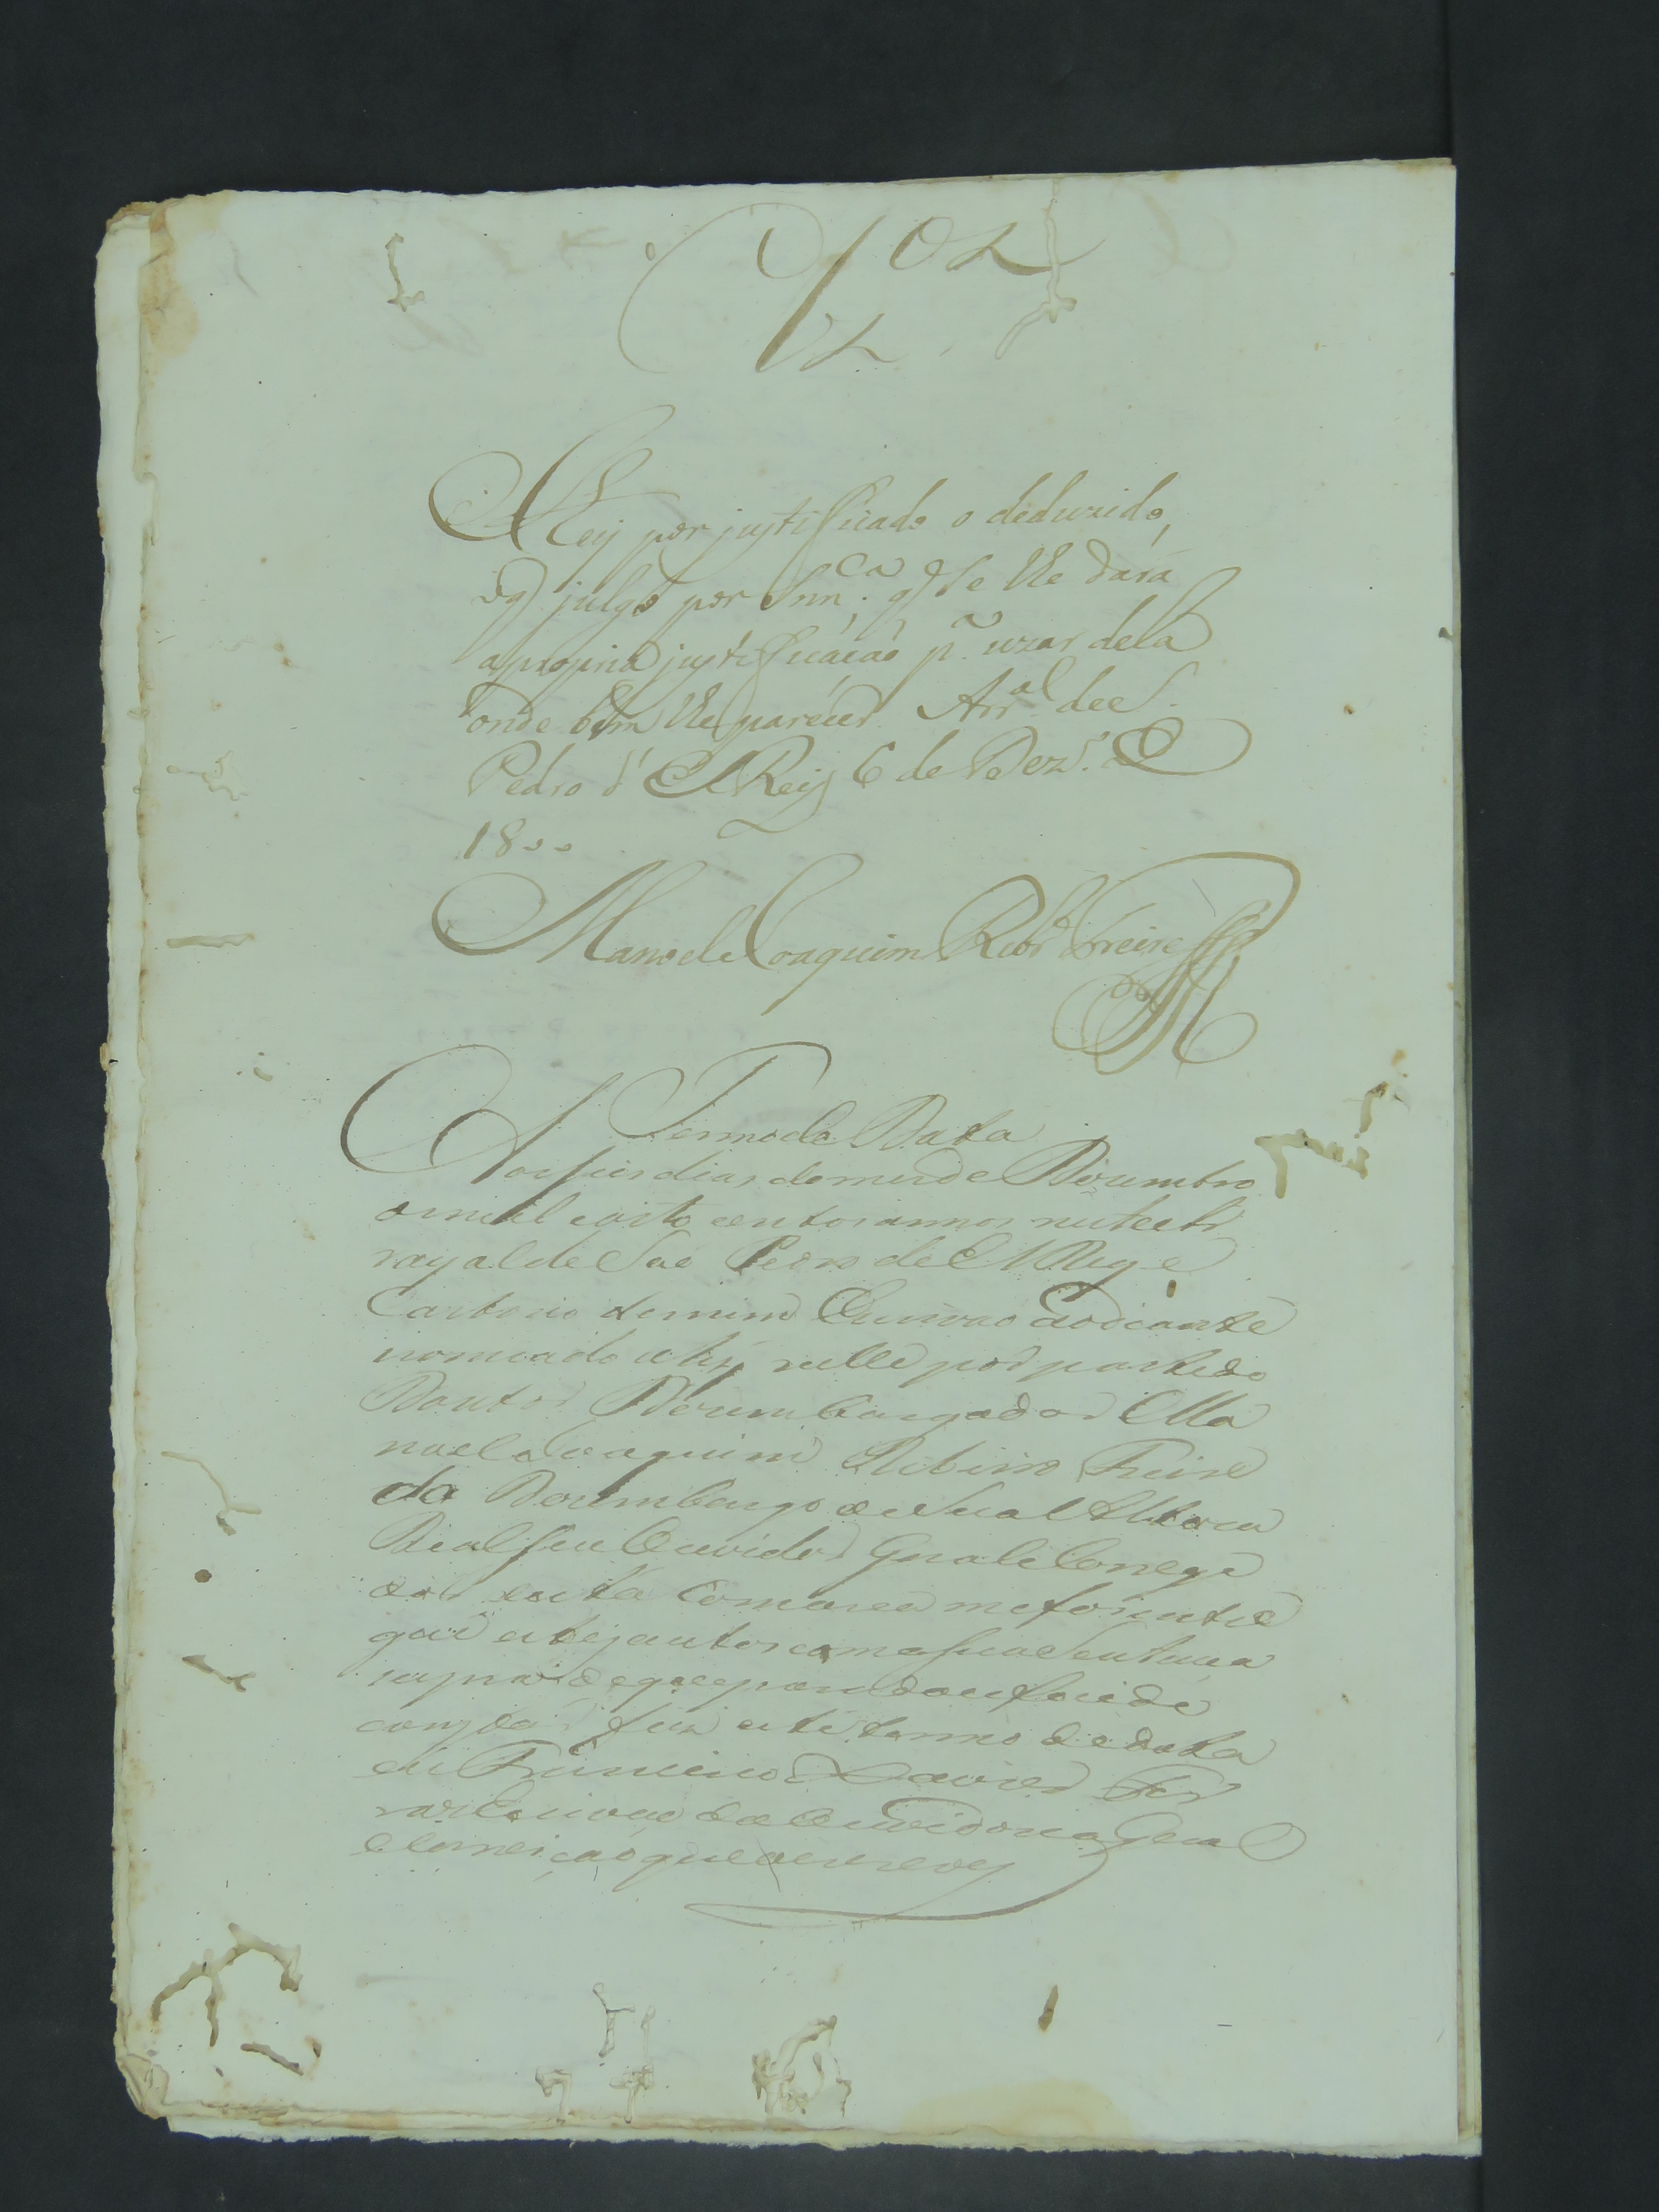 Hey por justificado o deduzido,
o q julgo por Snn.ca q se lhe dará
a propria justificação p.a uzar dela
onde bem lhe parecer. Arr.al de S.
Pedro d' El Rey 6 de Dez.o de
1800
Manoel Joaquim Ribr.o Freire
Termo de Data
Aos seis dias do mes de Dezembro
de mil oito centos annos neste Ar
rayal de São Pedro de El Rey e
Cartorio de mim Escrivao ao diante
nomeado ahi nelle por parte do
Doutor Dezembargador Ma
noel Joaquim Ribeiro Freire
do Dezembargo de Sua Alteza
Real seu Ouvidor Geral e Correge
dor desta Comarca me foi entre
gue estes autos com a sua Sentença
supra de que para de tudo
constar fiz este termo de data
eu Francisco Xavier
Escrivao da Ouvidoria Geral
e Correição que o escrevy